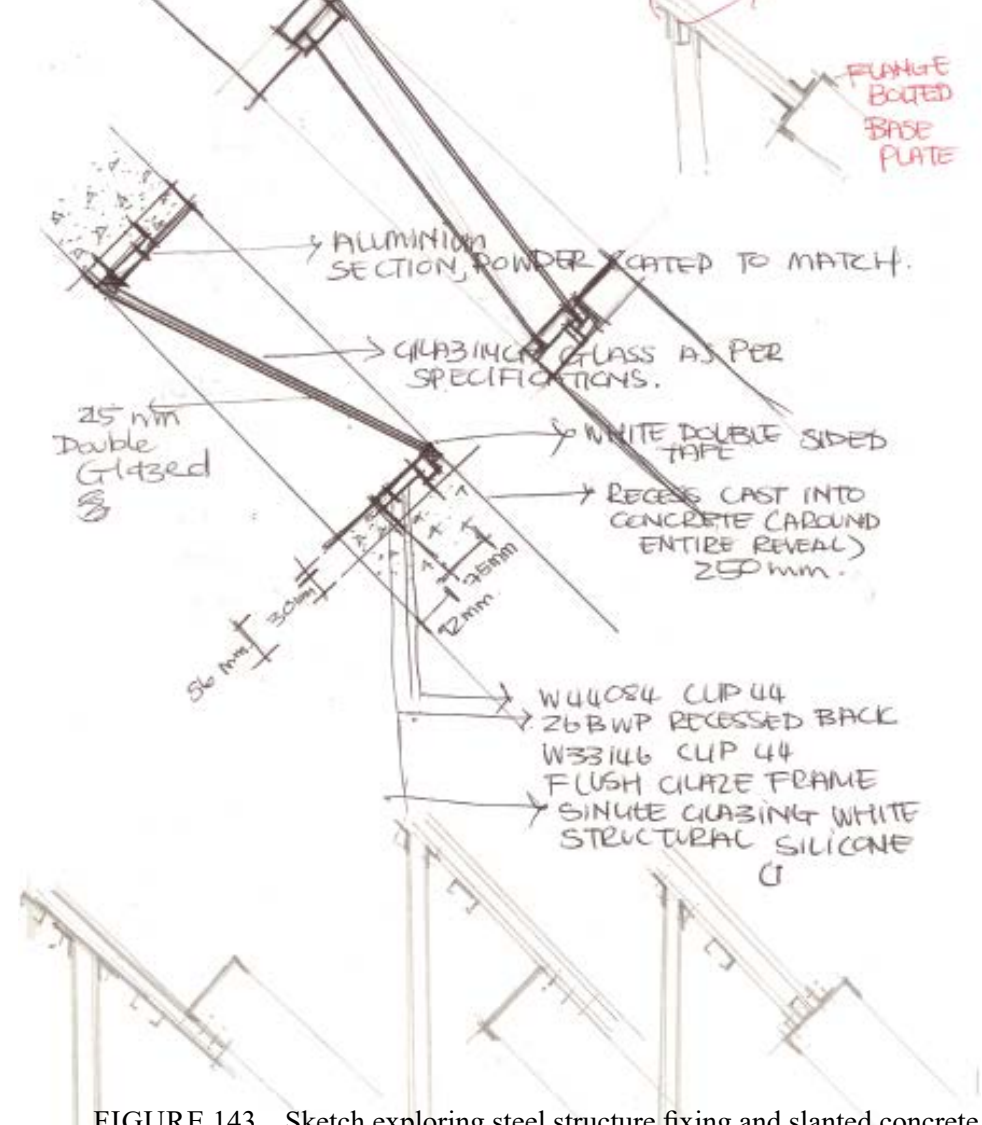 FLANGE
BOLTED
BASE
PLATE
ALUMINIUM
SECTION, POWDER COATED TO MATCH.
GLAZING GLASS AS PER
SPECIFICATIONS.
25 mm
Double
Glazed
WHITE DOUBLE SIDED
TAPE
RECESS CAST INTO
CONCRETE (AROUND
ENTIRE REVEAL)
250 mm.
75mm
12mm
30mm
56 mm
W44084 CLIP 44
26BWP RECESSED BACK
W33146 CLIP 44
FLUSH GLAZE FRAME
SINGLE GLAZING WHITE
STRUCTURAL SILICONE
FIGURE 143 Sketch exploring steel structure fixing and slanted concrete